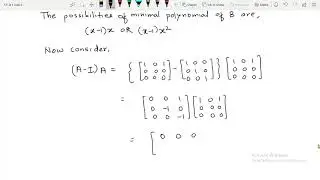 The possibilities of minimal polynomial of B are,
(x-1)x OR (x-1)x²
Now consider,
(A-I)A = { [ 1 0 1 ; 0 0 0 ; 0 0 0 ] - [ 1 0 0 ; 0 1 0 ; 0 0 1 ] } [ 1 0 1 ; 0 0 0 ; 0 0 0 ]
= [ 0 0 1 ; 0 -1 0 ; 0 0 -1 ] [ 1 0 1 ; 0 0 0 ; 0 0 0 ]
= [ 0 0 0